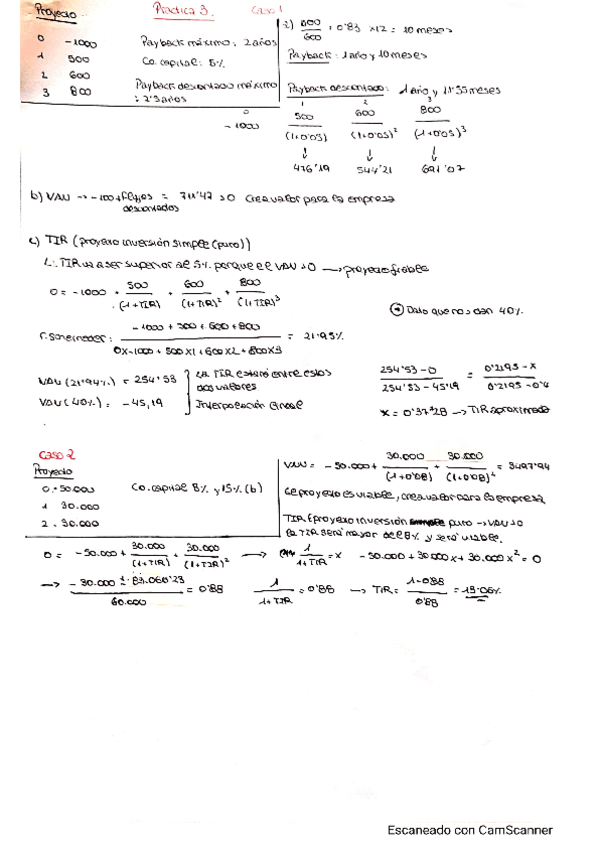 Proyecto
Practica 3.
Caso 1
0 -1000
1 500
2 600
3 800
Payback máximo: 2 años
Co. capital: 5%
Payback descontado máximo
: 2'5 años
a) 500/600 = 0'83 x12 = 10 meses
Payback: 1 año y 10 meses
Payback descontado: 1 año y 11'55 meses
0 1 2 3
-1000 500/(1+0'05) 600/(1+0'05)² 800/(1+0'05)³
↓ ↓ ↓
476'19 544'21 691'07
b) VAN → -100 + flujos descontados = 711'47 >0 Crea valor para la empresa
c) TIR (proyecto inversión simple (puro))
↳ TIR va a ser superior al 5% porque el VAN >0 → proyecto fiable
0 = -1000 + 500/(1+TIR) + 600/(1+TIR)² + 800/(1+TIR)³
→ Dato que nos dan 40%.
F. Schneider: (-1000 + 500 + 600 + 800)/(0x-1000 + 500x1 + 600x2 + 800x3) = 21'95%
VAN (21'94%) = 254'53
VAN (40%) = -45,19
La TIR estará entre estos
dos valores
Interpolación lineal
(254'53 - 0)/(254'53 - 45'19) = (0'2195 - x)/(0'2195 - 0'4)
x = 0'3728 → TIR aproximada
Caso 2
Proyecto
0 -50.000
1 30.000
2 30.000
Co. capital 8% y 15% (b)
VAN = -50.000 + 30.000/(1+0'08) + 30.000/(1+0'08)² = 3497'94
El proyecto es viable, crea valor para la empresa
TIR (proyecto inversión simple puro → VAN >0
la TIR será mayor del 8% y será viable.
0 = -50.000 + 30.000/(1+TIR) + 30.000/(1+TIR)² → 1/(1+TIR) = x -50.000 + 30.000x + 30.000x² = 0
→ (-30.000 ± 83.060'23)/60.000 = 0'88 1/(1+TIR) = 0'88 → TIR = (1-0'88)/0'88 = 13'06%
Escaneado con CamScanner